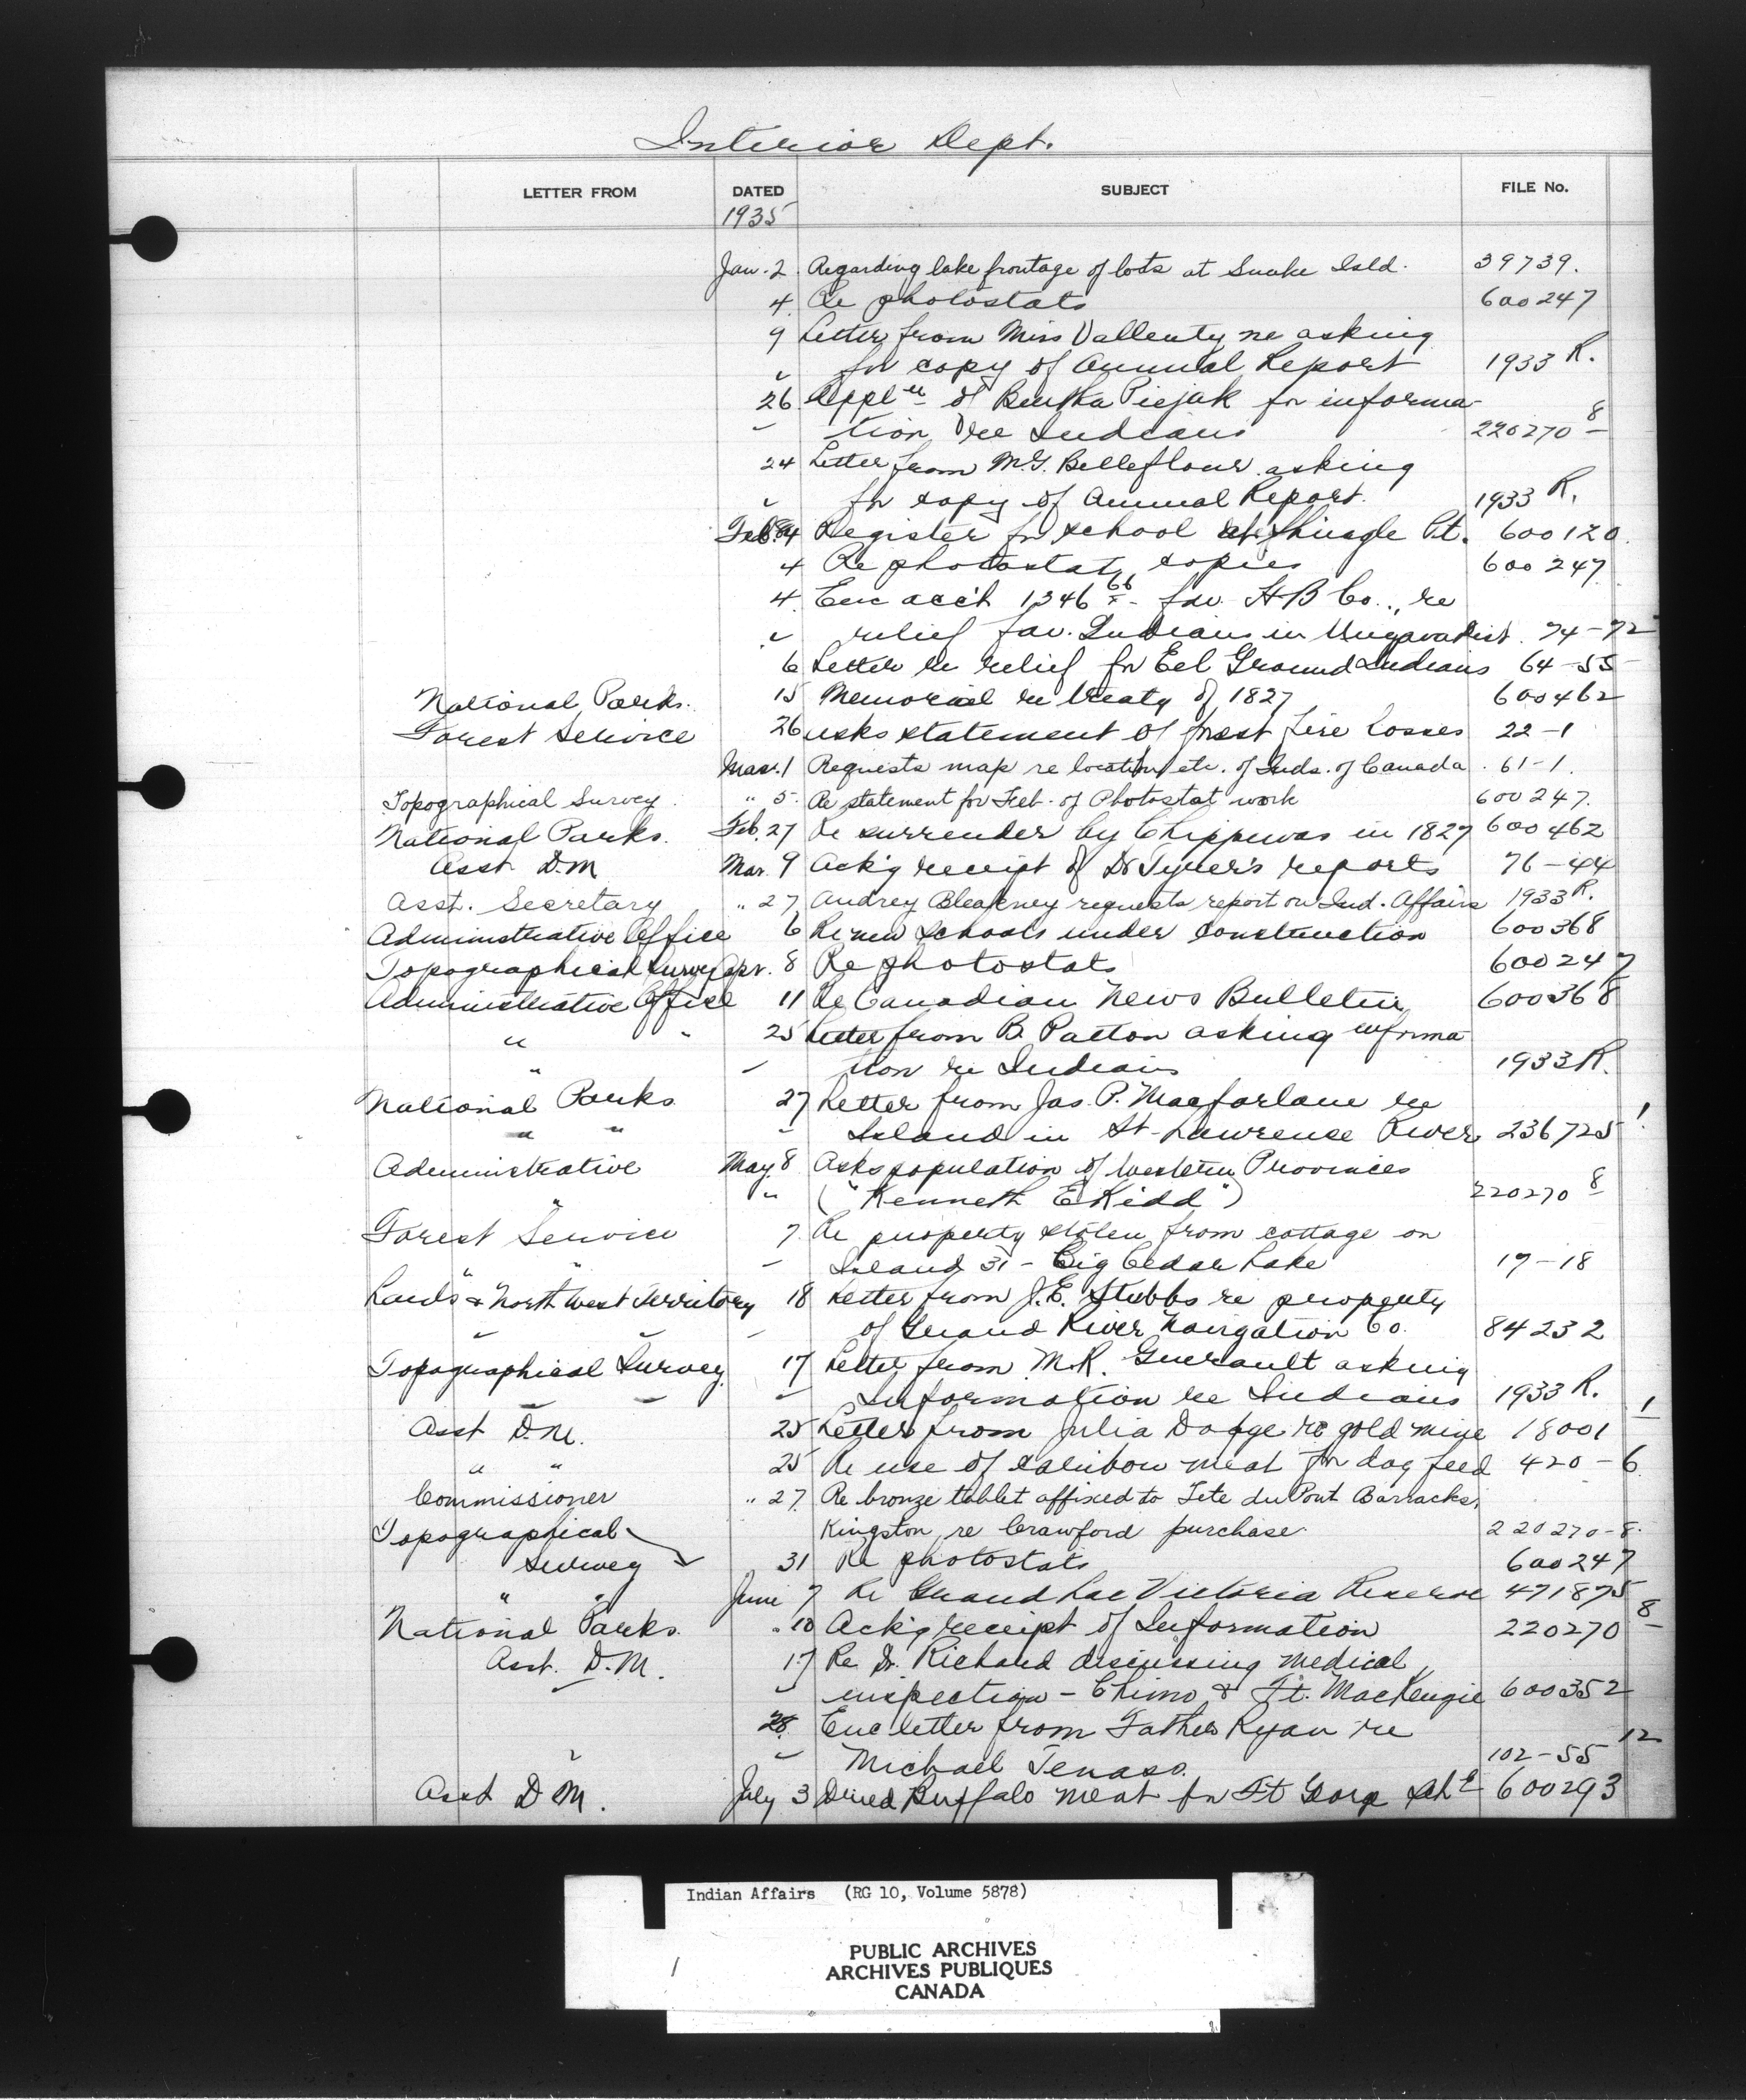 Interior Dept.
LETTER FROM DATED SUBJECT FILE No.
1935
Jan. 2 Regarding lake frontage of lots at Snake Isld. 39739.
4 Re photostats 600247
9 Letter from Miss Vallentyne asking
" for copy of Annual Report 1933 R.
26 Appl'n of Bertha Piejak for informa-
" tion re Indians 220270-8
24 Letter from M.G. Belleflour asking
" for copy of Annual Report. 1933 R.
Feb. 4 Register for school at Shingle Pt. 600120.
4 Re photostat copies 600247
4. Enc acc't 1346 66 fav. H B Co., re
" relief fav. Indians in Ungava Dist. 74-72
6 Letter re relief for Eel Ground Indians 64-55
National Parks. 15 Memorial re treaty of 1827 600462
Forest Service 26 asks statement of forest fire losses 22-1
Mar. 1 Requests map re location etc. of Inds. of Canada. 61-1.
Topographical Survey. " 5. Re statement for Feb. of Photostat work 600247.
National Parks. Feb. 27 Re surrender by Chippewas in 1827 600462
Asst D.M Mar. 9 Ack'g receipt of Dr Tyrer's reports 76-44
Asst. Secretary " 27 Audrey Bleakney requests report on Ind. Affairs 1933 R.
Administrative Office 6 Re new schools under construction 600368
Topographical Survey Apr. 8 Re photostats 600247
Administrative Office 11 Re Canadian News Bulletin 600368
" " 25 Letter from B. Patton asking informa
" " tion re Indians 1933 R.
National Parks 27 Letter from Jas. P. Macfarlane re
" " " Island in St. Lawrence River 236725 1
Administrative May 8 Asks population of Western Provinces
" " ("Kenneth E Kidd") 220270 8
Forest Service 7 Re property stolen from cottage on
" " " Island 31 - Big Cedar Lake 17-18
Lands & North West Territory 18 Letter from J.E. Stubbs re property
" " " of Grand River Navigation Co. 84232
Topographical Survey 17 Letter from M.R. Guerault asking
" " " Information re Indians 1933 R.
Asst D.M. 25 Letter from Julia Dodge re gold mine 18001 1
" " 25 Re use of caribou meat for dog feed 420-6
Commissioner " 27. Re bronze tablet affixed to Tete du Pont Barracks,
Kingston, re Crawford purchase 220270-8.
Topographical
Survey 31 Re photostats 600247
" " June 7 Re Grand Lac Victoria Reserve 471875
National Parks. " 10 Ack'g receipt of Information 220270 8
Asst. D.M. 17 Re Dr. Richard discussing medical
" " inspection - Chimo & Ft. MacKenzie 600352
28. Enc letter from Father Ryan re
" " Michael Tenass. 102-55 12
Asst D M. July 3 Dried Buffalo meat for Ft George Sch 600293
Indian Affairs (RG 10, Volume 5878)
PUBLIC ARCHIVES
ARCHIVES PUBLIQUES
CANADA